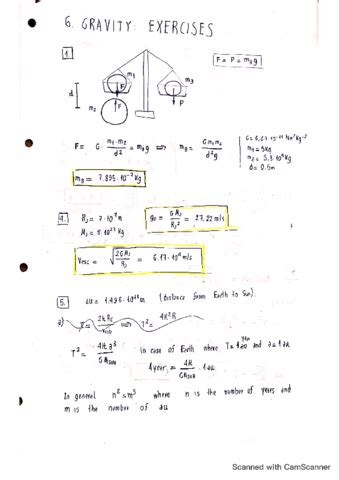 6. GRAVITY: EXERCISES
1.
F = P = m₃g
m₁
m₃
F
d
m₂
F
P
F = G · m₁·m₂ / d² = m₃g ⟹ m₃ = G m₁m₂ / d²g
G = 6,67·10⁻¹¹ Nm²kg⁻²
m₁ = 5kg
d = 0,5m
m₃ = 7,895·10⁻⁷ kg
4.
g₀ = G MJ / RJ² = 27,22 m/s
Vesc = √(2GMJ / RJ) = 6,17·10⁴ m/s
5.
au = 1,496·10¹¹ m (distance from Earth to Sun).
a)
T² = 4π²a³ / G MSUN in case of Earth where T = 1 and a = 1au
1year = 4π / GMSUN · 1au
In general n² = m³ where n is the number of years and
m is the number of au
Scanned with CamScanner